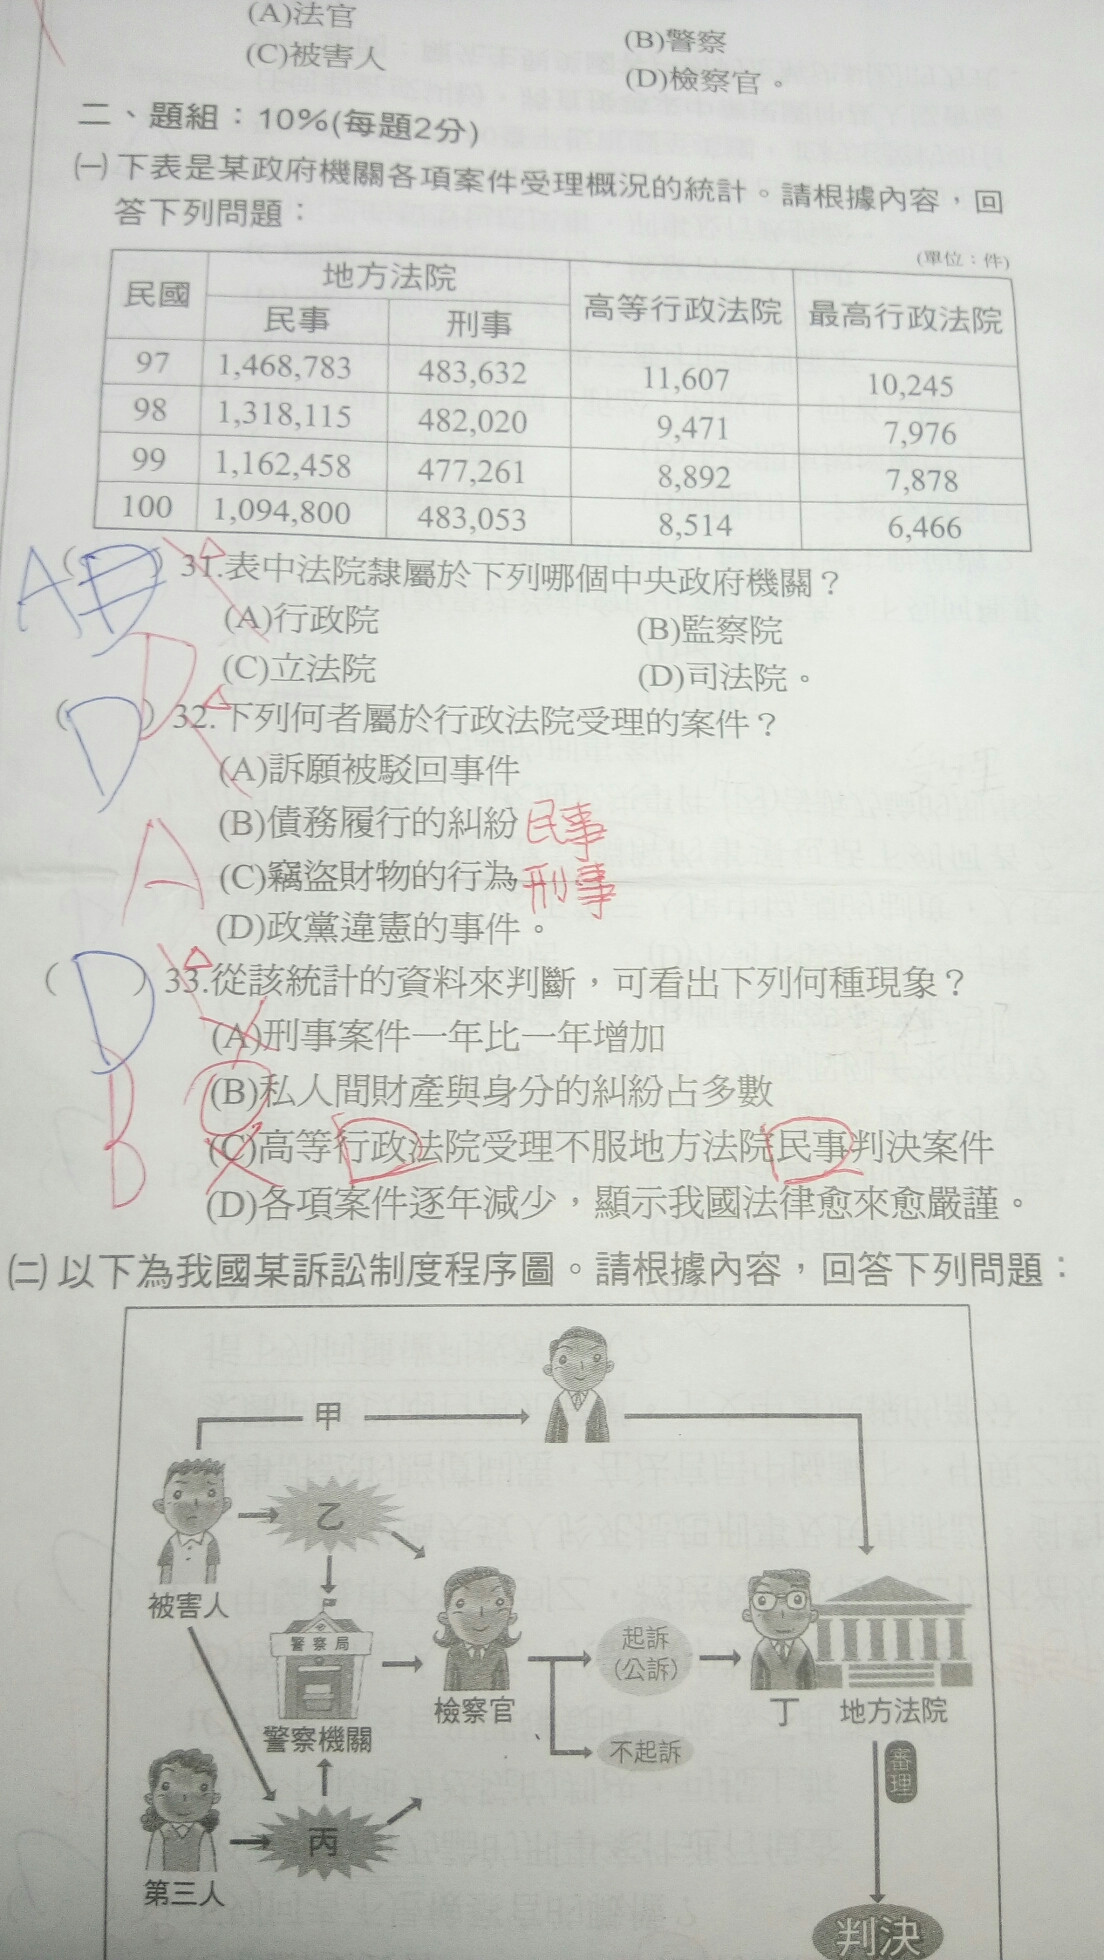 (A)法官
(B)警察
(C)被害人
(D)檢察官。
二、題組：10%(每題2分)
㈠下表是某政府機關各項案件受理概況的統計。請根據內容，回
答下列問題：
(單位：件)
民國 地方法院 高等行政法院 最高行政法院
民事 刑事
97 1,468,783 483,632 11,607 10,245
98 1,318,115 482,020 9,471 7,976
99 1,162,458 477,261 8,892 7,878
100 1,094,800 483,053 8,514 6,466
A ( ) 31.表中法院隸屬於下列哪個中央政府機關？
(A)行政院
(B)監察院
(C)立法院
(D)司法院。
D
( D ) 32.下列何者屬於行政法院受理的案件？
(A)訴願被駁回事件
(B)債務履行的糾紛 民事
A
(C)竊盜財物的行為 刑事
(D)政黨違憲的事件。
( D ) 33.從該統計的資料來判斷，可看出下列何種現象？
(A)刑事案件一年比一年增加
(B)私人間財產與身分的糾紛占多數
B
(C)高等行政法院受理不服地方法院民事判決案件
(D)各項案件逐年減少，顯示我國法律愈來愈嚴謹。
㈡以下為我國某訴訟制度程序圖。請根據內容，回答下列問題：
甲
乙
被害人
警察局
警察機關
檢察官
起訴
(公訴)
不起訴
丁
地方法院
審理
丙
第三人
判決